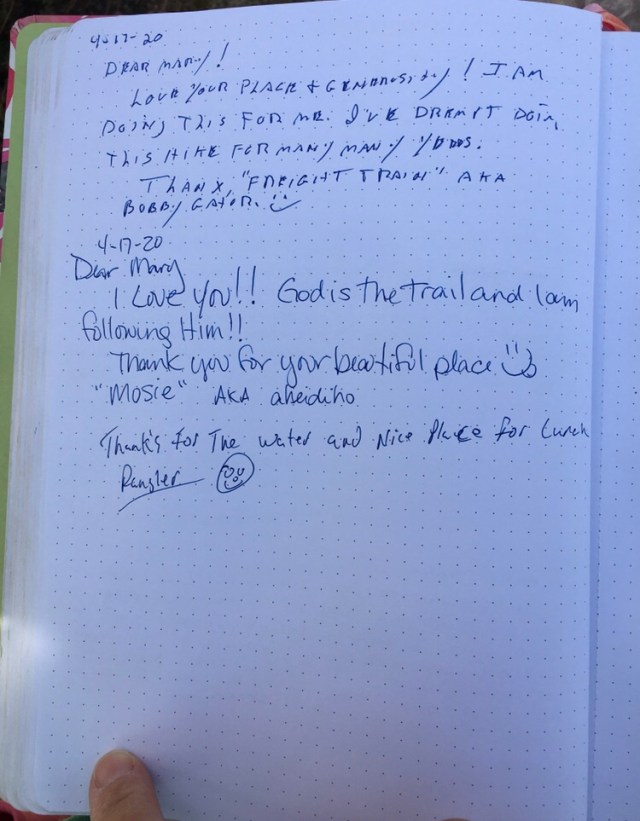 4-17-20
DEAR MARY!
LOVE YOUR PLACE & GENEROSITY! I AM
DOING THIS FOR ME. I'VE DREAMT DOIN,
THIS HIKE FOR MANY MANY
THANX, "FREIGHT TRAIN" AKA
BOBBY GATOR.
4-17-20
Dear Mary
I Love you!! God is the Trail and I am
following Him!!
Thank you for your beautiful place
"Mosie" AKA
Thank's for The water and Nice Place for Lunch
Rangler